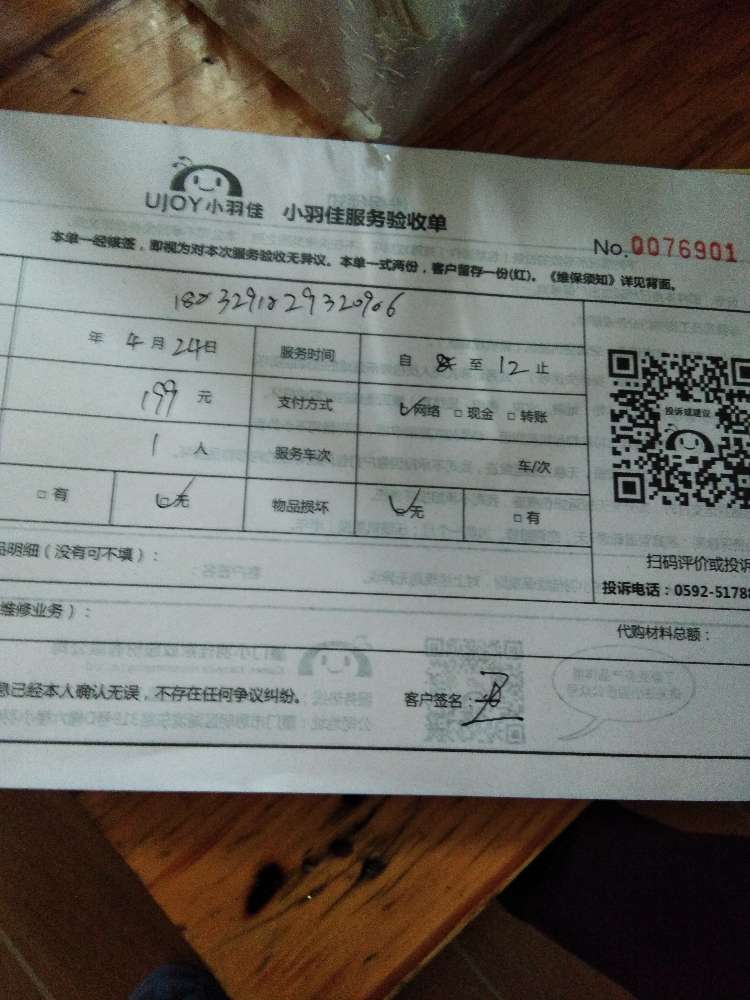 UJOY小羽佳 小羽佳服务验收单
No.0076901
本单一经峻签，即视为对本次服务验收无异议。本单一式两份，客户留存一份(红)。《维保须知》详见背面。
年 4月24日 服务时间 自 8 至 12 止
199 元 支付方式 网络 □现金 □转账
投诉或建议
1 人 服务车次 车/次
□有 无 物品损坏 无 □有
品明细（没有可不填）：
扫码评价或投诉
投诉电话：0592-51788
维修业务）：
代购材料总额：
息已经本人确认无误，不存在任何争议纠纷。 客户签名：